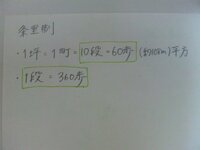 条里制
・1坪=1町=10段=60歩(約109m)平方
・1段=360歩